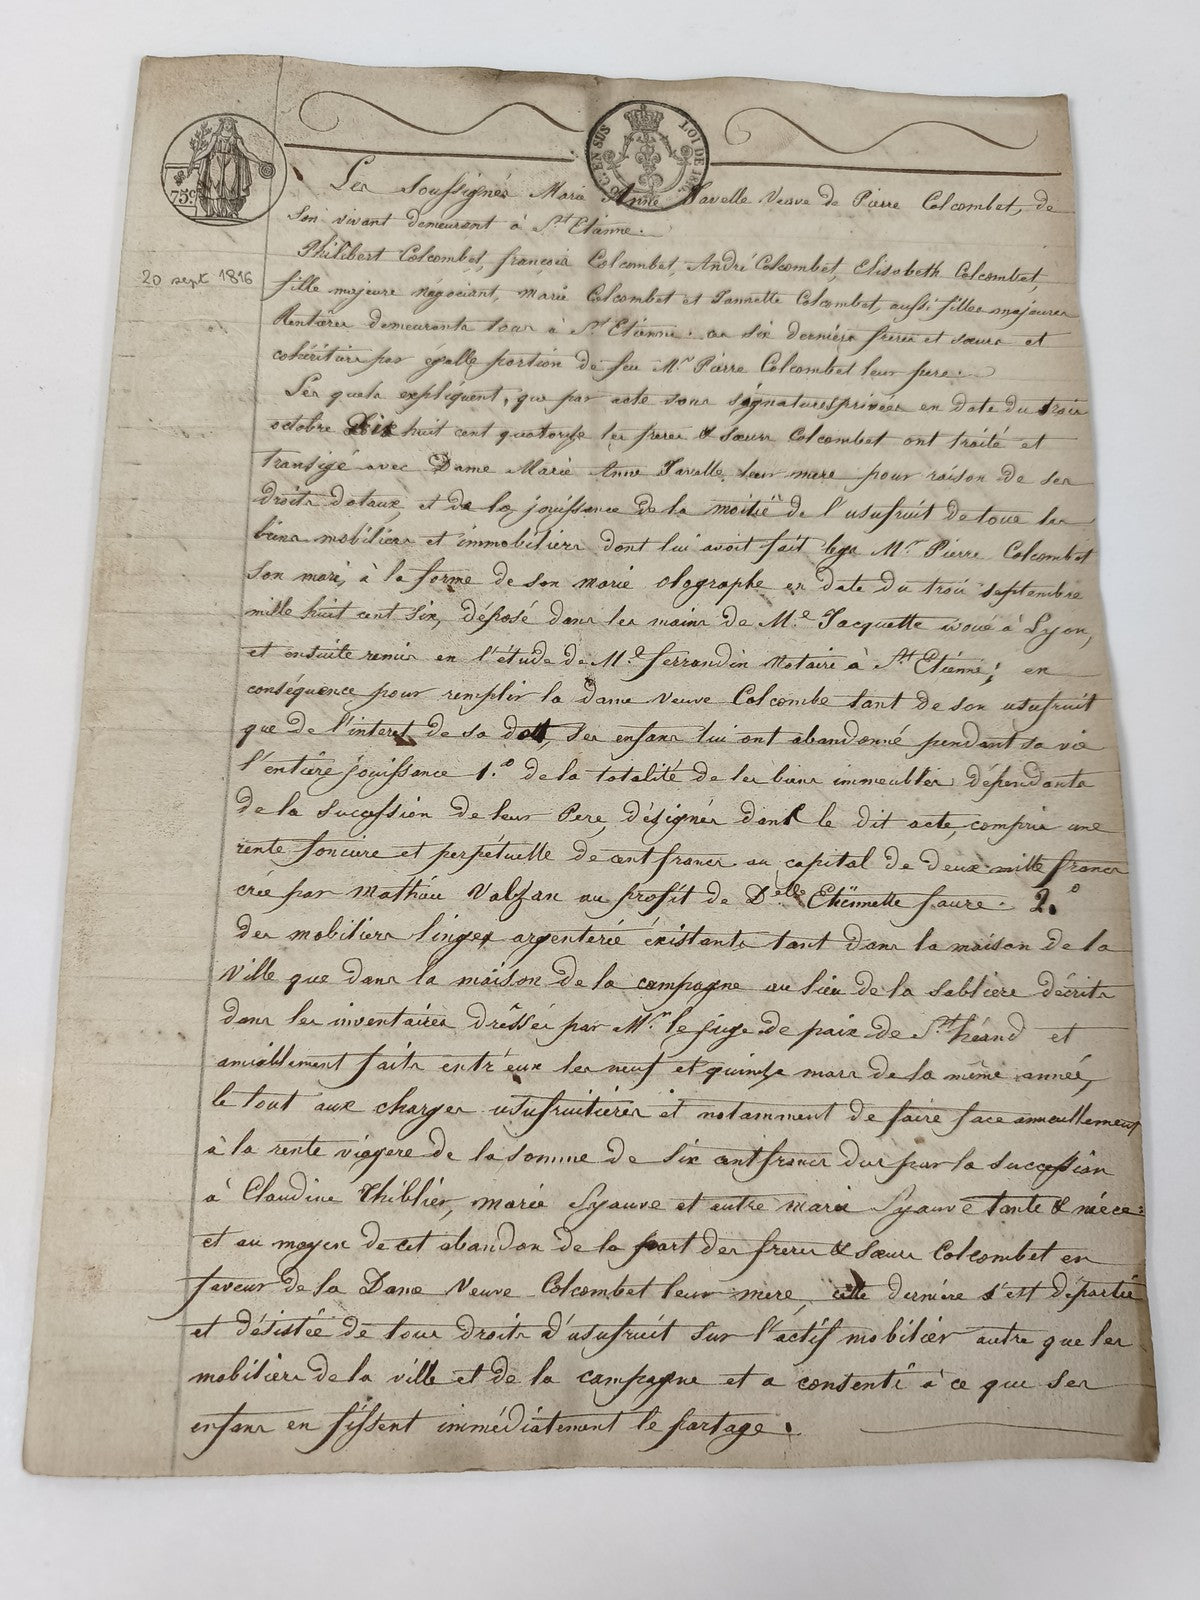 75c.
C. EN SUS
LOI DE 18
20 sept 1816
Les Soussignés Marie Anne Tavelle Veuve de Pierre Colcombet, de
son vivant demeurant à St Etienne.
Philibert Colcombet, françois Colcombet, André Colcombet, Elisabeth Colcombet,
fille majeure négociant, marie Colcombet et Jannette Colcombet, aussi filles majeures
Rentières demeurants tous à St Etienne. ces six derniers freres et sœurs et
cohéritiers par égalle portion de feu Mr. Pierre Colcombet leur pere.
Les quels expliquent, que par acte sous signatures privées en date du trois
octobre Dix huit cent quatorze les freres & sœurs Colcombet ont traité et
transigé avec Dame Marie Anne Tavelle, leur mere pour raison de ses
droits dotaux, et de la jouissance de la moitié de l'usufruit de tous les
biens mobiliers et immobiliers dont lui avoit fait legs Mr. Pierre Colcombet
son mari, à la forme de son olographe en date du trois septembre
mille huit cent six, déposé dans les mains de Me. Jacquette avoué à Lyon,
et ensuite remis en l'étude de Me. ferrandin Notaire à St Etienne; en
conséquence pour remplir la dame veuve Colcombe tant de son usufruit
que de l'interet de sa dott, ses enfans lui ont abandonné pendant sa vie
l'entière jouissance 1.o de la totalité de les biens immeubles dépendants
de la succession de leur Pere, désignés dans le dit acte compris une
rente fonciere et perpétuelle de cent francs au capital de deux mille francs
crée par Mathieu Valzan au profit de Delle. Etiennette faure. 2.o
des mobiliers linges argenterie éxistants tant dans la maison de la
Ville que dans la maison de la campagne au lieu de la Sabliere décrits
dans les inventaires dressés par Mr. le juge de paix de St. héand et
amiablement faits entr'eux les neuf et quinze mars de la même année,
le tout aux charges usufruitieres et notamment de faire face annuellement
à la rente viagere de la somme de six cent francs dus par la succession
à Claudine Thiblier, marie Syauve et autre marie Syauve tante & niéce=
et au moyen de cet abandon de la part des freres & sœurs Colcombet en
faveur de la Dame Veuve Colcombet leur mere, cette derniére s'est départie
et désistée de tous droits d'usufruit sur l'actif mobilier autre que les
mobiliers de la ville et de la campagne et a consenti à ce que ses
enfans en fissent immédiatement le partage.